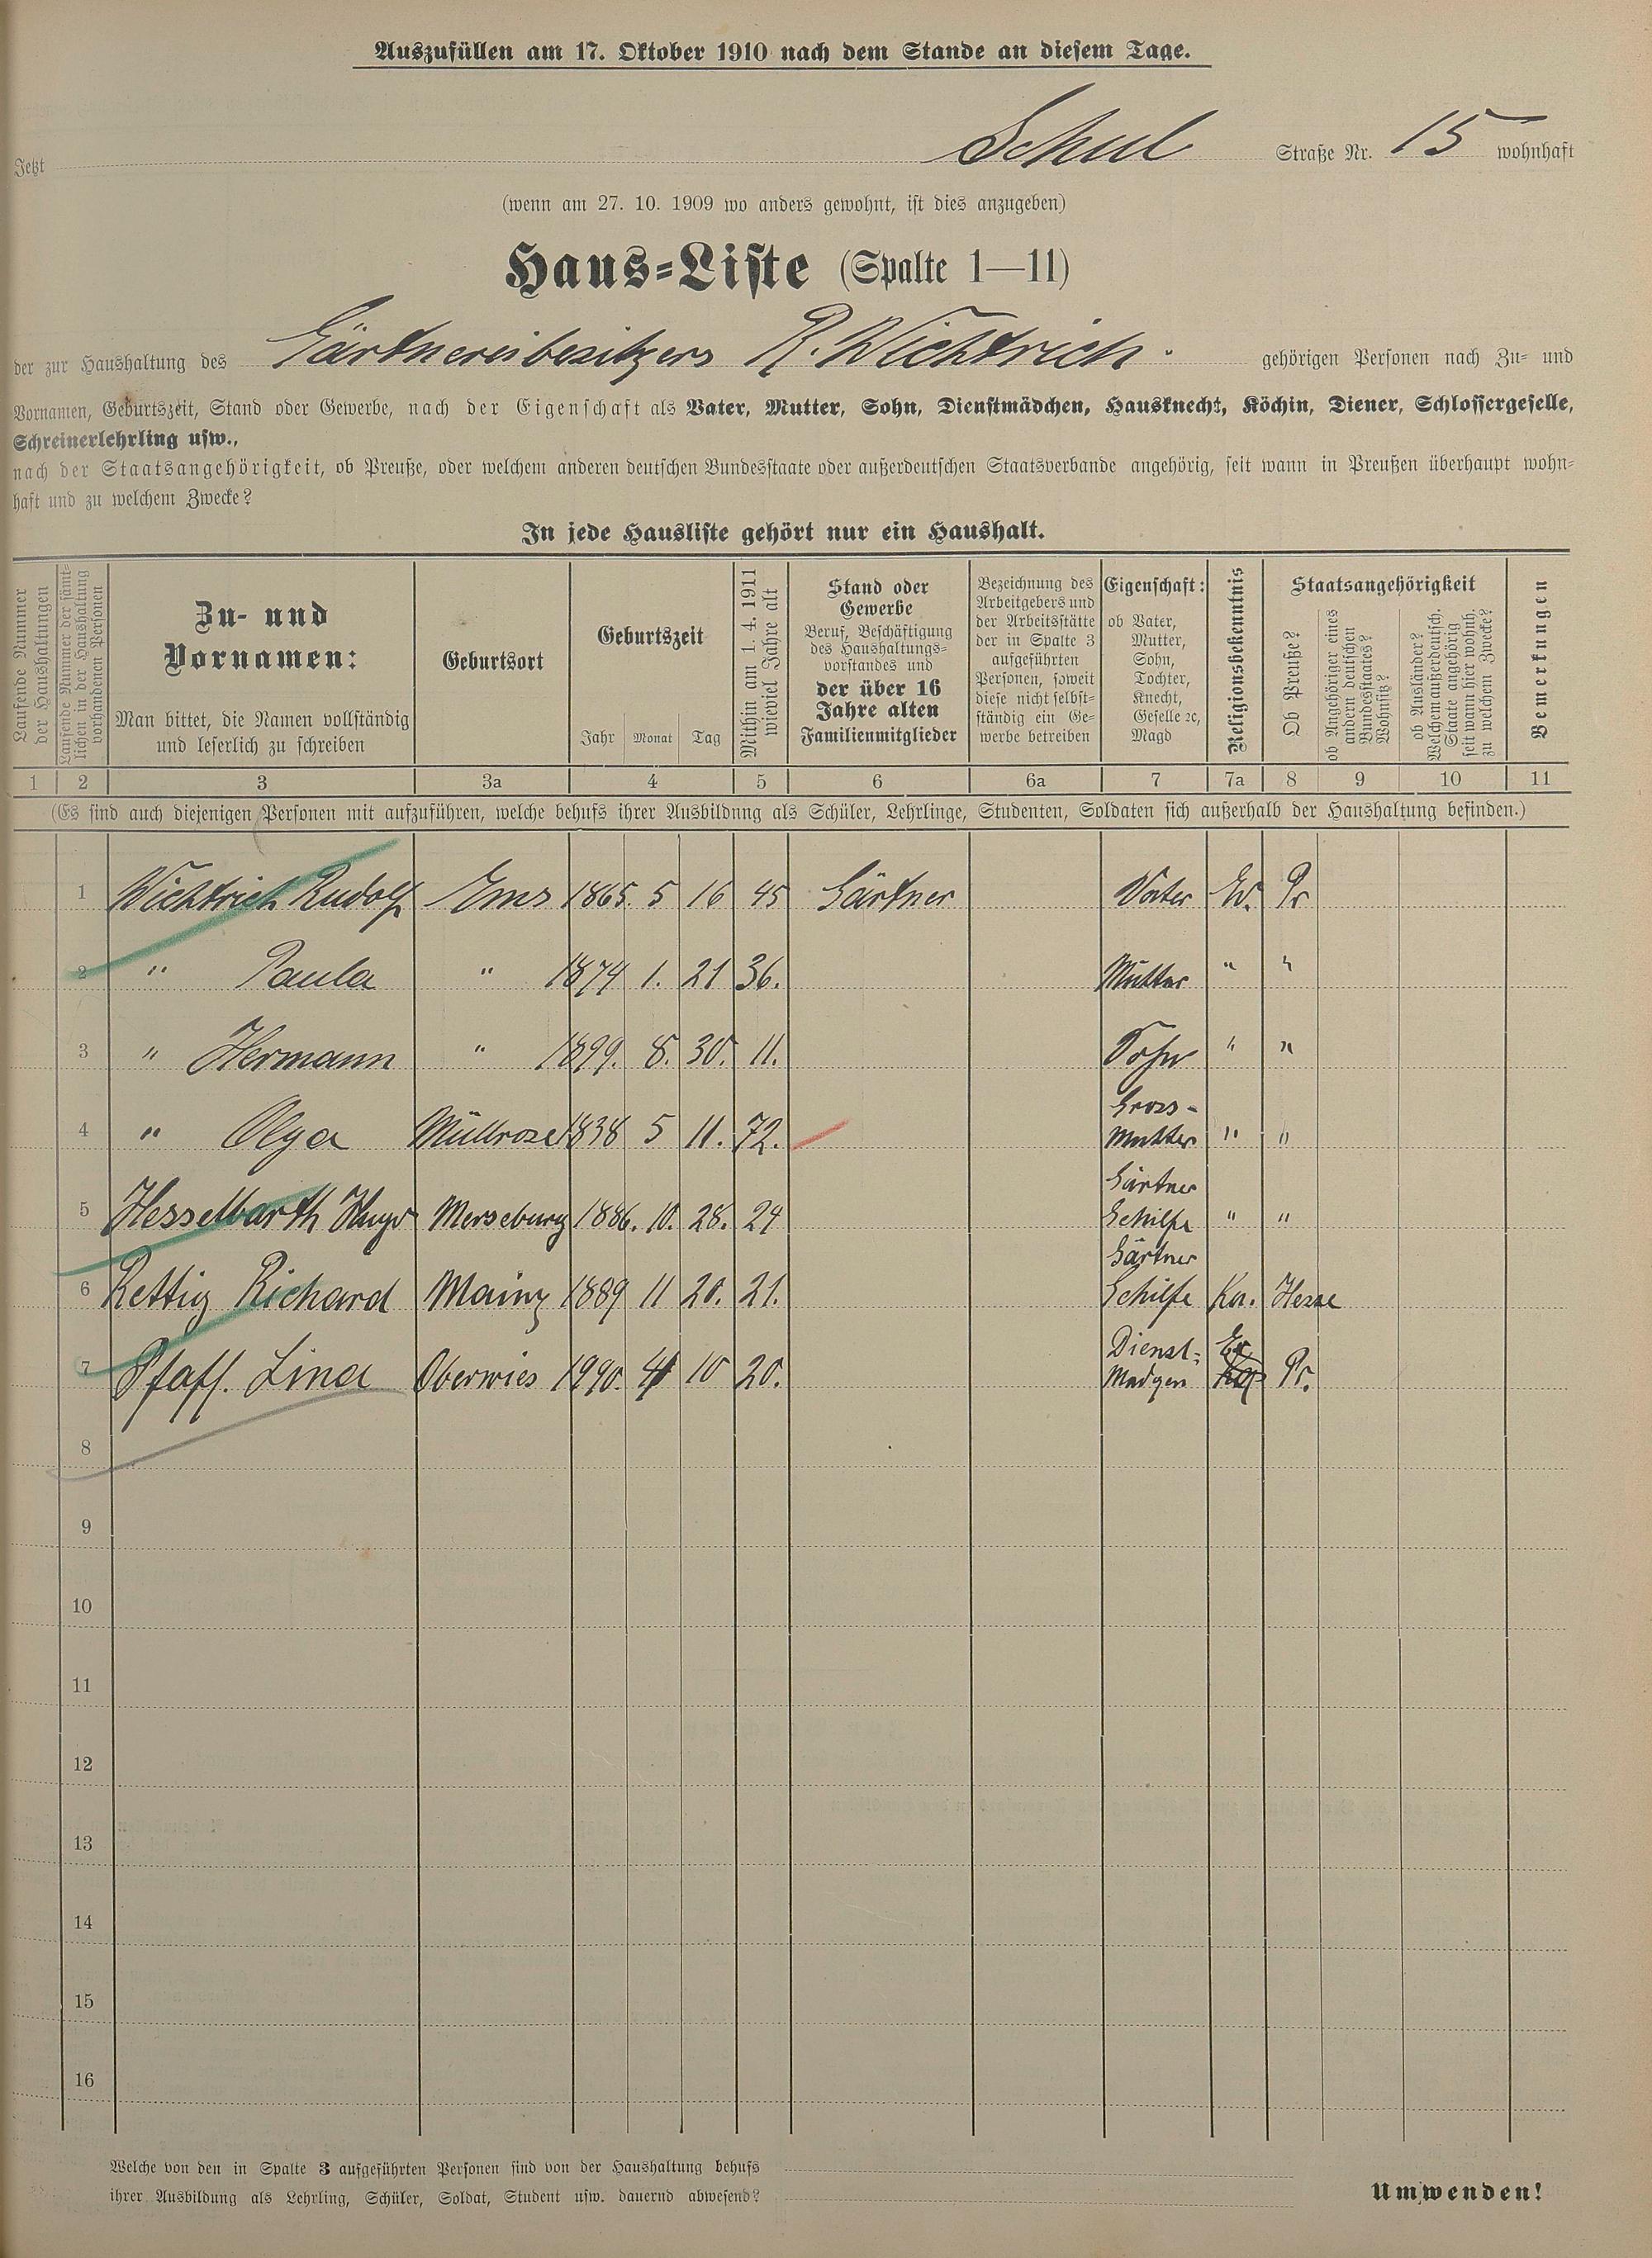 Auszufüllen am 17. Oktober 1910 nach dem Stande an diesem Tage.
Jetzt Schul Straße Nr. 15 wohnhaft
(wenn am 27. 10. 1909 wo anders gewohnt, ist dies anzugeben)
Haus-Liste (Spalte 1—11)
der zur Haushaltung des Gärtnereibesitzers R. Wichtrich. gehörigen Personen nach Zu- und
Vornamen, Geburtszeit, Stand oder Gewerbe, nach der Eigenschaft als Vater, Mutter, Sohn, Dienstmädchen, Hausknecht, Köchin, Diener, Schlossergeselle,
Schreinerlehrling usw.,
nach der Staatsangehörigkeit, ob Preuße, oder welchem anderen deutschen Bundesstaate oder außerdeutschen Staatsverbande angehörig, seit wann in Preußen überhaupt wohn-
haft und zu welchem Zwecke?
In jede Hausliste gehört nur ein Haushalt.
Laufende Nummer
der Haushaltungen
Laufende Nummer der sämt-
lichen in der Haushaltung
vorhandenen Personen
Zu- und
Vornamen:
Man bittet, die Namen vollständig
und leserlich zu schreiben
Geburtsort
Geburtszeit
Jahr Monat Tag
Mithin am 1. 4. 1911
wieviel Jahre alt
Stand oder
Gewerbe
Beruf, Beschäftigung
des Haushaltungs-
vorstandes und
der über 16
Jahre alten
Familienmitglieder
Bezeichnung des
Arbeitgebers und
der Arbeitsstätte
der in Spalte 3
aufgeführten
Personen, soweit
diese nicht selbst-
ständig ein Ge-
werbe betreiben
Eigenschaft:
ob Vater,
Mutter,
Sohn,
Tochter,
Knecht,
Geselle ꝛc,
Magd
Religionsbekenntnis
Staatsangehörigkeit
Ob Preuße?
ob Angehöriger eines
andern deutschen
Bundesstaates?
Wohnsitz?
ob Ausländer?
Welchem außerdeutsch.
Staate angehörig
seit wann hier wohnh.
zu welchem Zwecke?
Bemerkungen
1 2 3 3a 4 5 6 6a 7 7a 8 9 10 11
(Es sind auch diejenigen Personen mit aufzuführen, welche behufs ihrer Ausbildung als Schüler, Lehrlinge, Studenten, Soldaten sich außerhalb der Haushaltung befinden.)
1 Wichtrich Rudolf Ems 1865. 5 16 45 Gärtner Vater Ev. Pr
2 " Paula " 1874 1. 21 36. Mutter " "
3 " Hermann " 1899. 8. 30. 11. Sohn " "
Gross-
4 " Olga Müllrose 1838 5 11. 72. Mutter " "
Gärtner
5 Hesselbarth Hugo Merseburg 1886. 10. 28. 24 Gehilfe " "
Gärtner
6 Rettig Richard Mainz 1889 11 20. 21. Gehilfe Ka. Hesse
Dienst- Ev.
7 Pfaff. Lina Oberwies 1890. 4 10 20. Madgen Pr.
8
9
10
11
12
13
14
15
16
Welche von den in Spalte 3 aufgeführten Personen sind von der Haushaltung behufs
ihrer Ausbildung als Lehrling, Schüler, Soldat, Student usw. dauernd abwesend?
Umwenden!